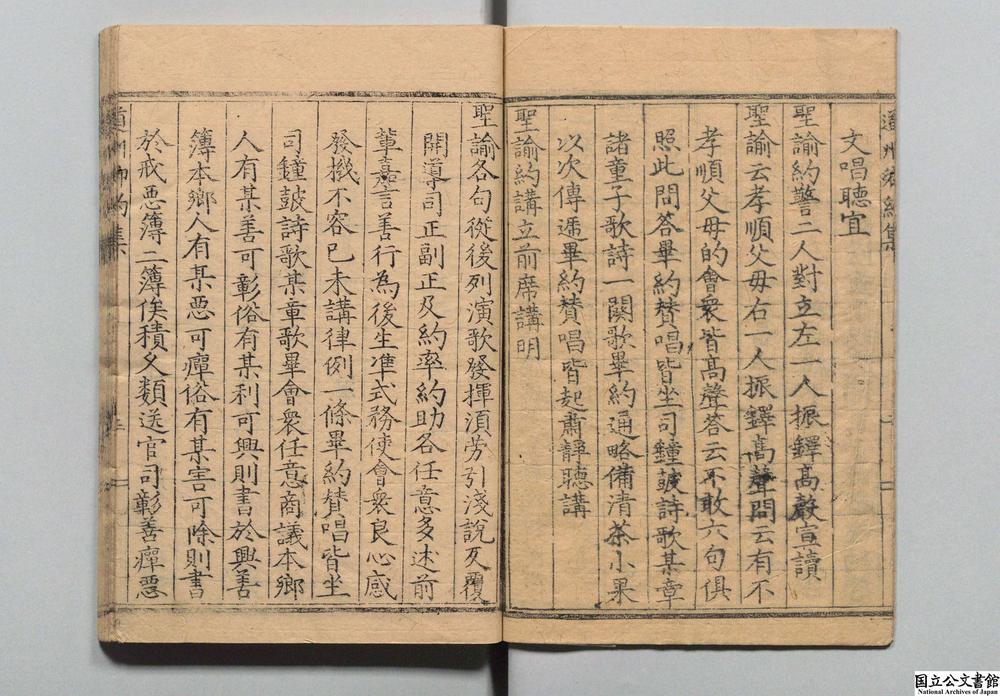 文唱聽宣
聖諭約警二人對立左一人振鐸高聲宣讀
聖諭云孝順父母右一人振鐸高聲問云有不
孝順父母的會衆皆高聲答云不敢六句俱
照此問答畢約賛唱皆坐司鐘鼓詩歌某章
諸童子歌詩一闋歌畢約通略備清茶小果
以次傳遞畢約賛唱皆起肅靜聽講
聖諭約講立前席講明
聖諭各句從後列演歌發揮須旁引淺說反覆
開導司正副正及約率約助各任意多述前
輩嘉言善行為後生凖式務使會衆良心感
發機不容已未講律例一條畢約賛唱皆坐
司鐘鼓詩歌某章歌畢會衆任意商議本鄉
人有某善可彰俗有某利可興則書於興善
簿本鄉人有某惡可癉俗有某害可除則書
於戒惡簿二簿俟積久類送官司彰善癉惡
國立公文書館
National Archives of Japan